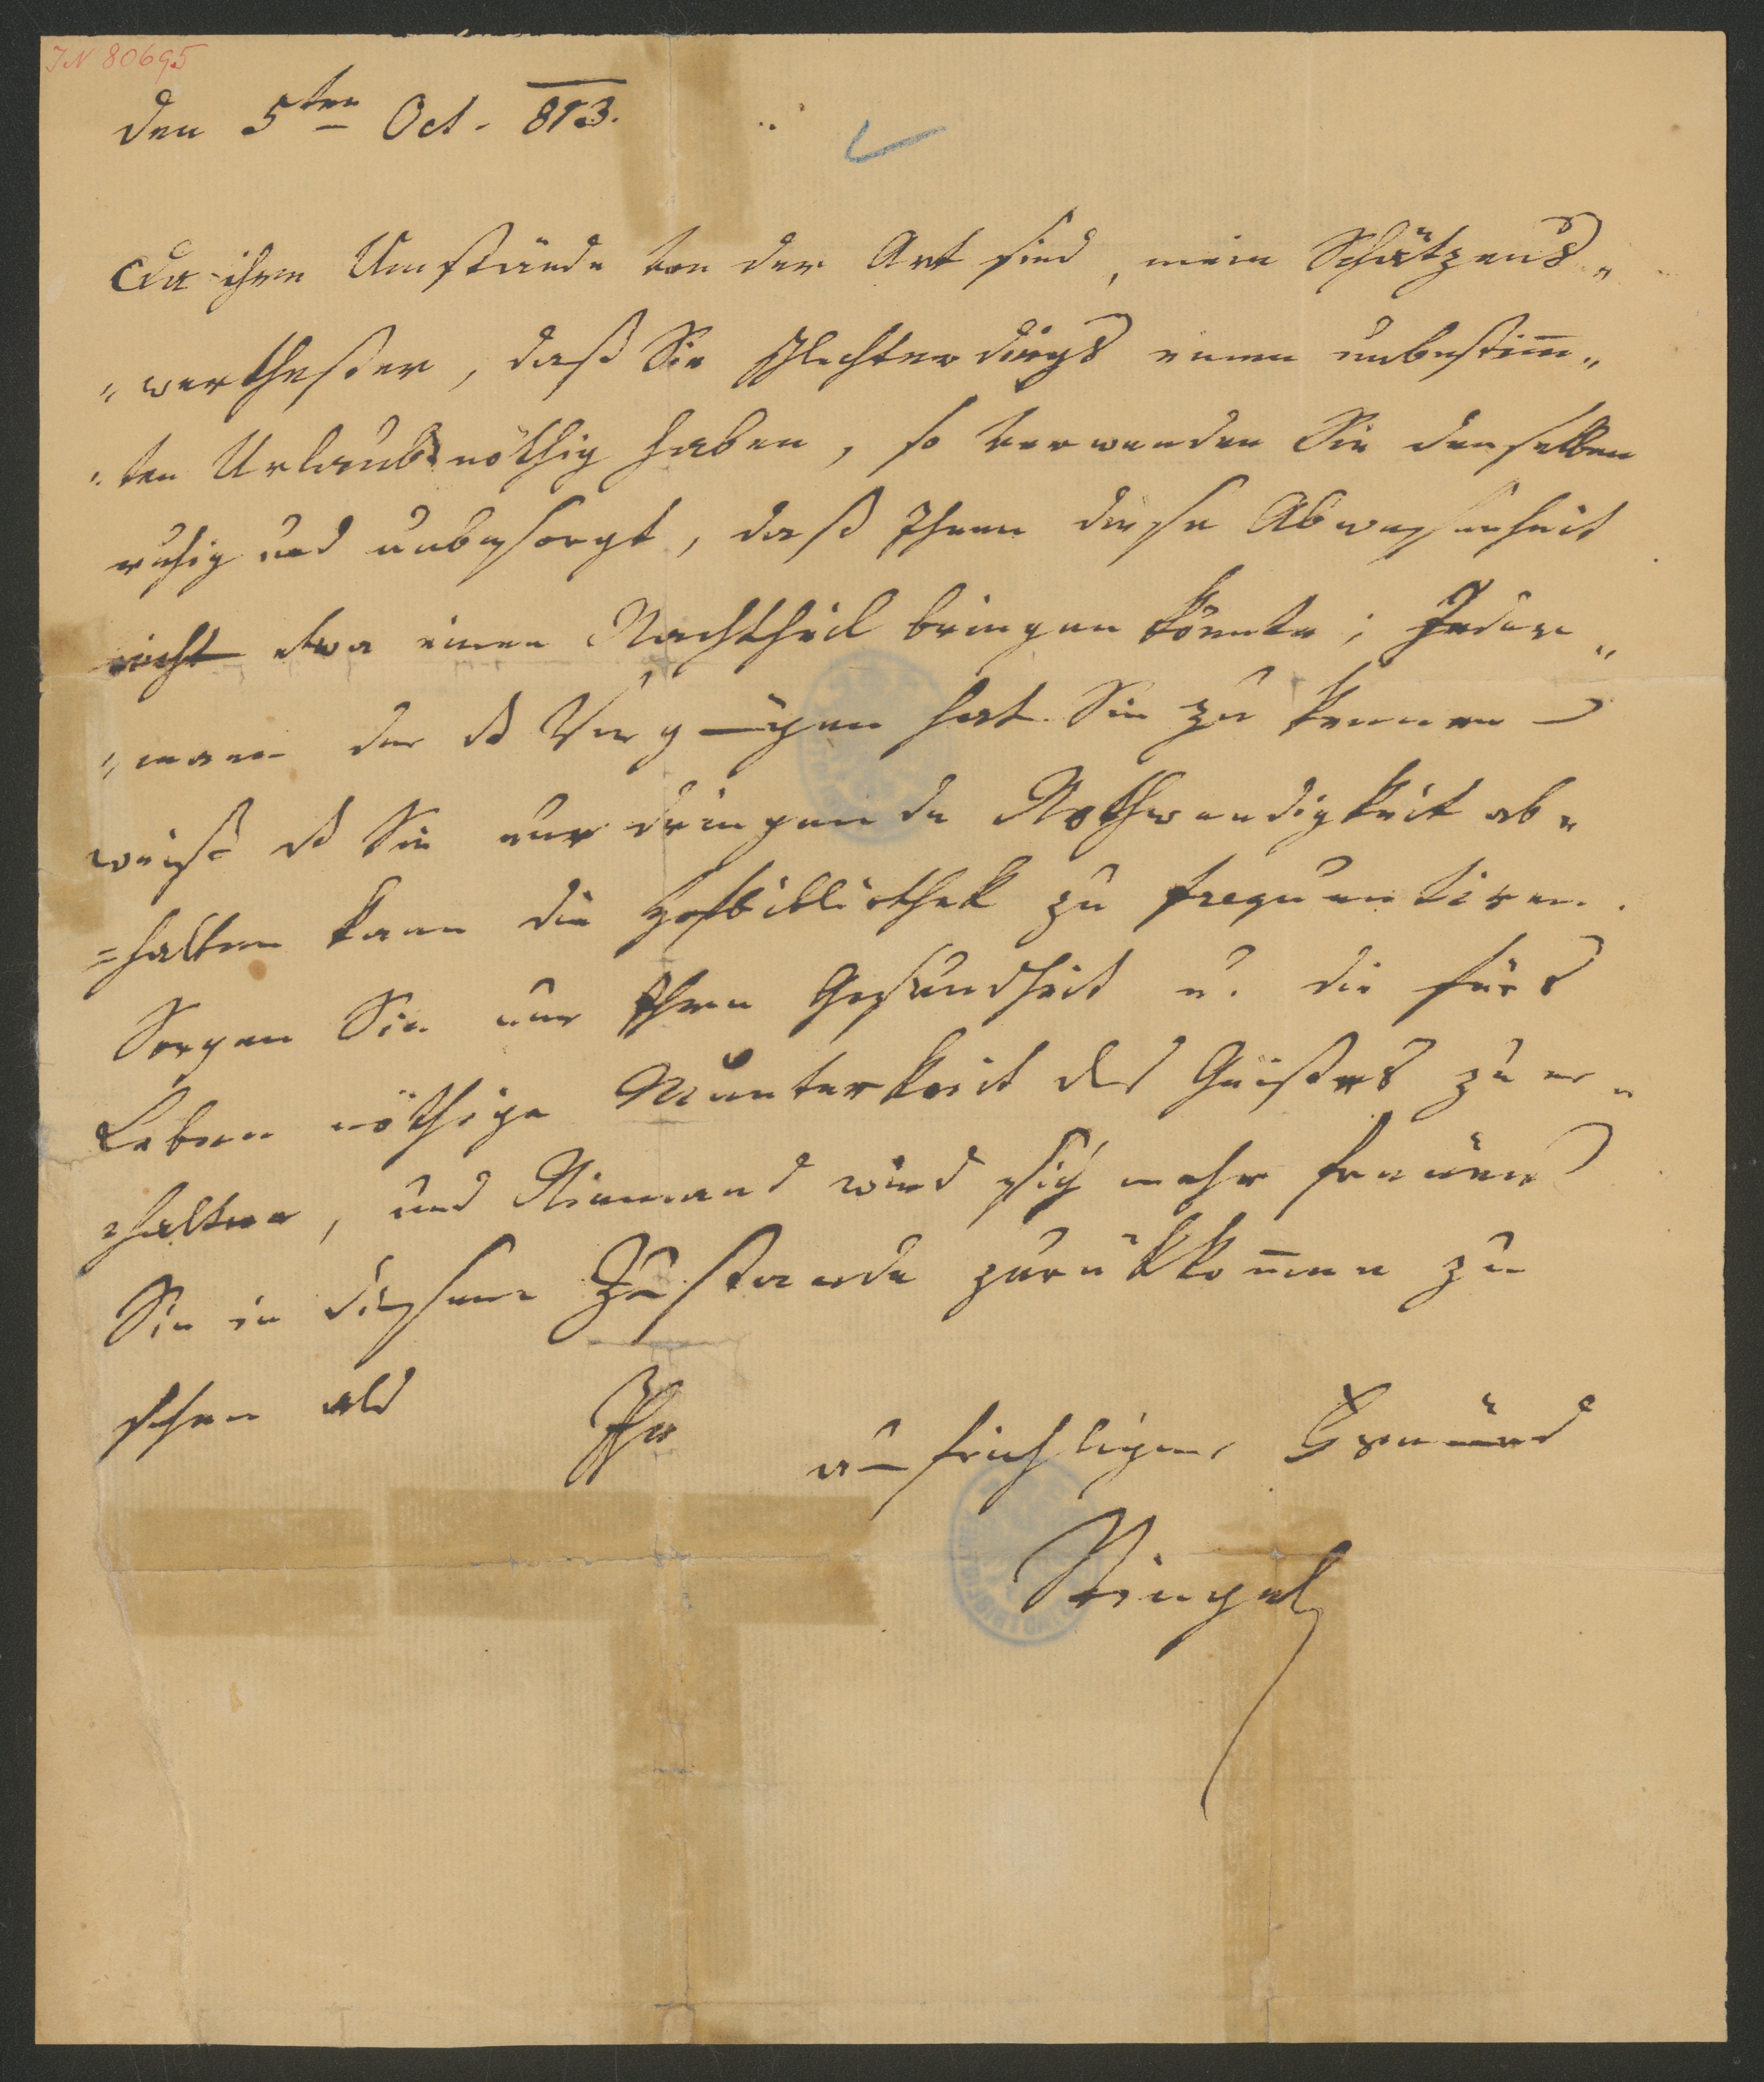 IN 80695
den 5ten Oct. 813.
Da ihre Umstände von der Art sind, mein Schätzens„
„werthester, daß Sie schlechterdings einen unbestim̅„
„ten Urlaub nöthig haben, so verwenden Sie denselben
ruhig und unbesorgt, daß Ihnen diese Abwesenheit
nicht etwa einen Nachtheil bringen könnte; Jeder„
„mann der das Vergnügen hat Sie zu kennen
weißt daß Sie nur dringende Nothwendigkeit ab„
=halten kann die Hofbibliothek zu frequentiren.
Sorgen Sie nur Ihre Gesundheit u. die fürs
Leben nöthige Munterkeit des Geistes zu er„
„halten, und Niemand wird sich mehr freuen
Sie in diesem Zustande zurükkom̅en zu
sehen als Ihr aufrichtiger Freund